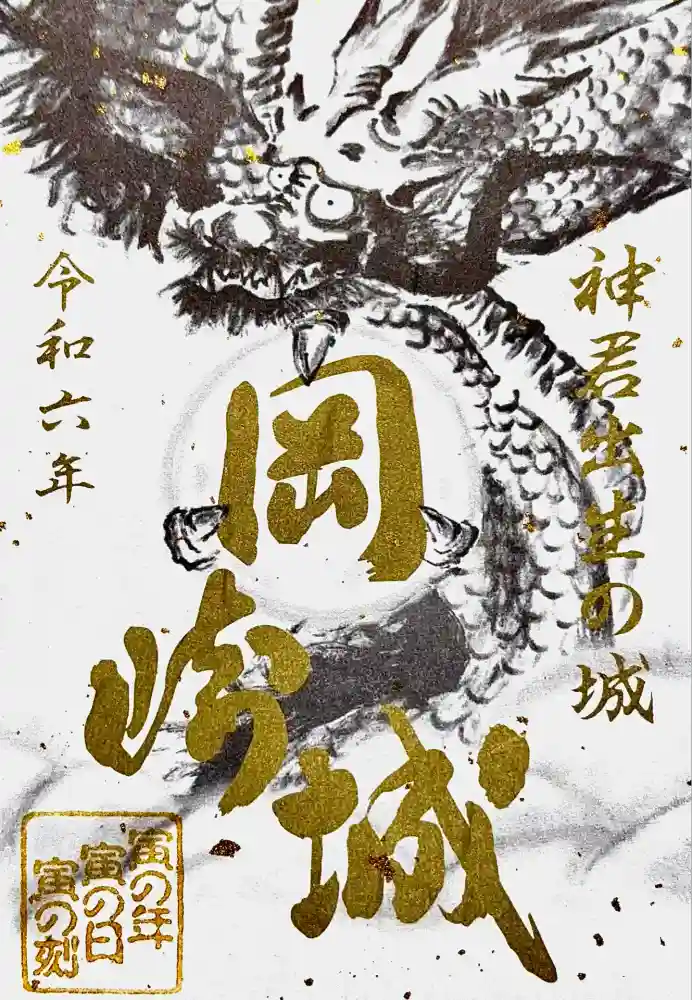 神君出生の城
岡崎城
令和六年
寅の年
寅の日
寅の刻